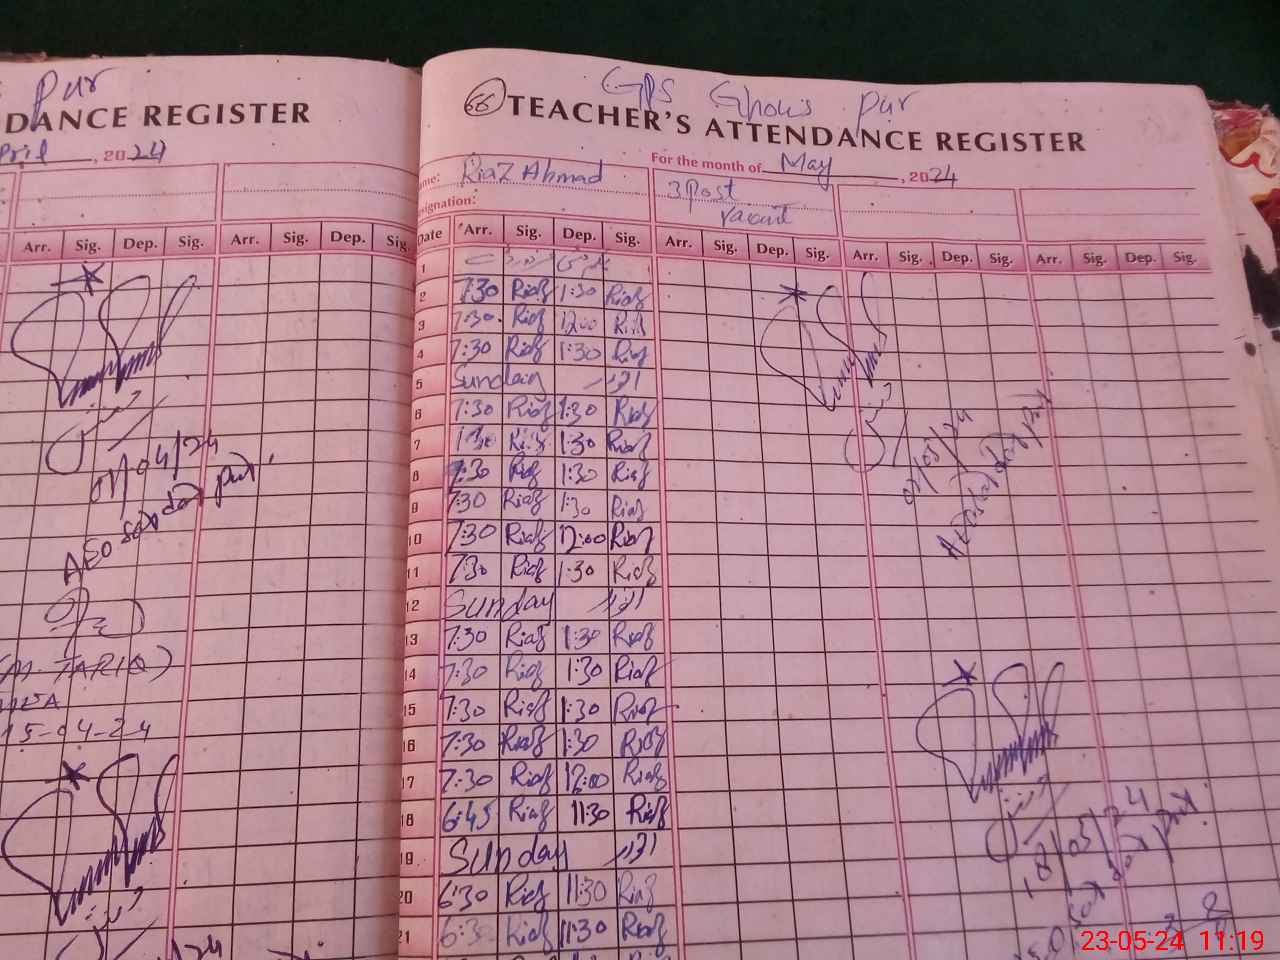 Pur
DANCE REGISTER
April, 2024
Arr. Sig. Dep. Sig. Arr. Sig. Dep. Sig.
01/04/24
AEO
(M. TARIQ)
15-04-24
GPS Ghous Pur
66 TEACHER'S ATTENDANCE REGISTER
For the month of May, 2024
ame: Riaz Ahmad 3 Post
esignation: vacant
Date Arr. Sig. Dep. Sig. Arr. Sig. Dep. Sig. Arr. Sig. Dep. Sig. Arr. Sig. Dep. Sig.
1
2 7:30 Riaz 1:30 Riaz
3 7:30 Riaz 12:00 Riaz
4 7:30 Riaz 1:30 Riaz
5 Sunday اتوار
6 7:30 Riaz 1:30 Riaz
7 7:30 Riaz 1:30 Riaz
8 7:30 Riaz 1:30 Riaz
9 7:30 Riaz 1:30 Riaz
10 7:30 Riaz 12:00 Riaz
11 7:30 Riaz 1:30 Riaz
12 Sunday اتوار
13 7:30 Riaz 1:30 Riaz
14 7:30 Riaz 1:30 Riaz
15 7:30 Riaz 1:30 Riaz
16 7:30 Riaz 1:30 Riaz
17 7:30 Riaz 12:00 Riaz
18 6:45 Riaz 11:30 Riaz
19 Sunday اتوار
20 6:30 Riaz 11:30 Riaz
21 6:30 Riaz 11:30 Riaz
02/05/24
18/05/24
23-05-24 11:19